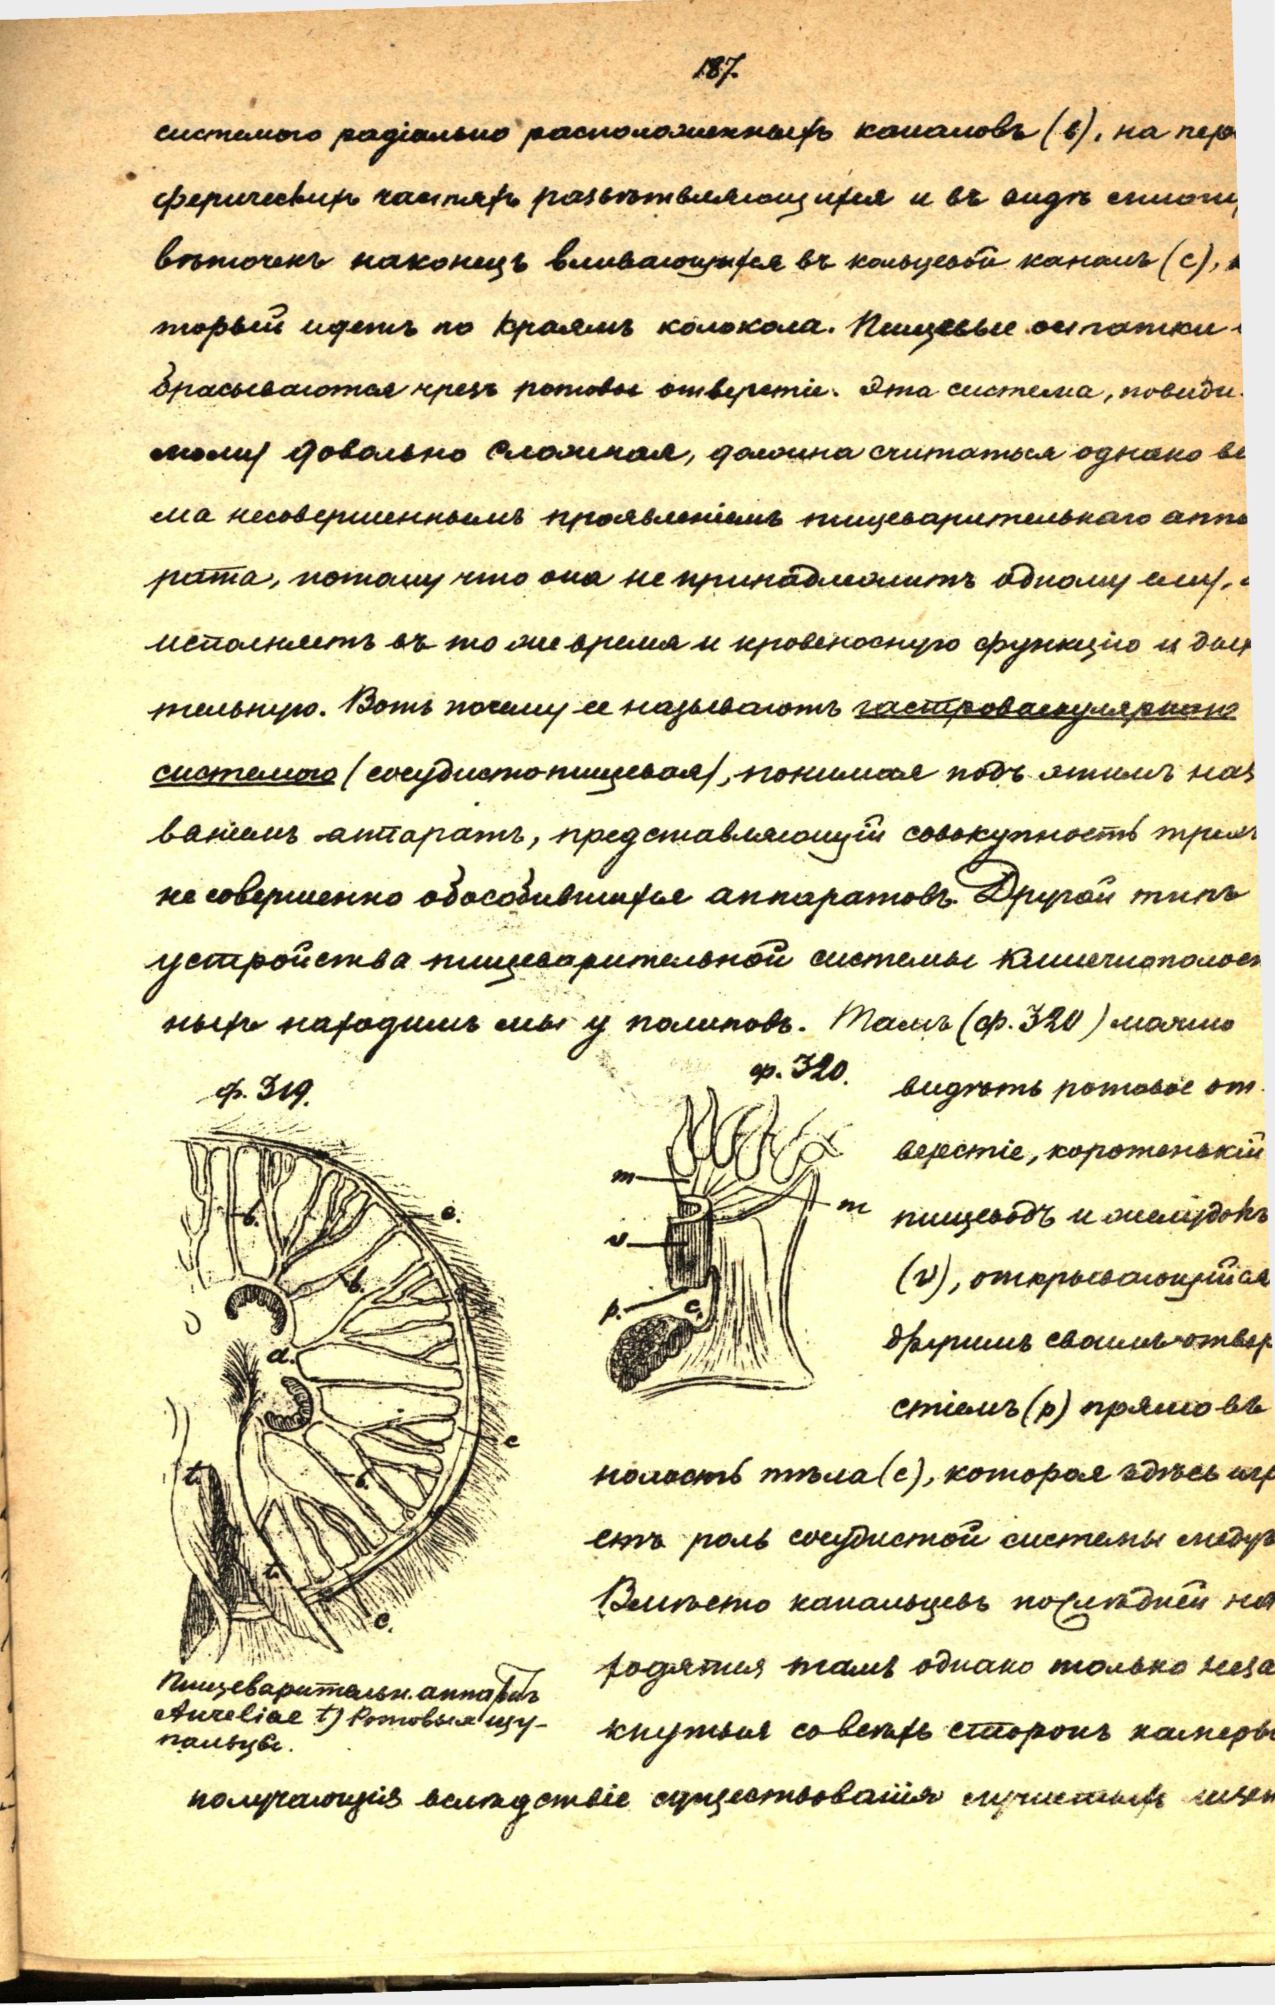 187.
системою радіально расположенныхъ каналовъ (в), на пери
ферическихъ частяхъ развѣтвляющихся и въ видѣ
вѣточекъ наконецъ вливающихся въ кольцевой каналъ (с),
торый идетъ по краямъ колокола. Пищевые остатки
брасываются чрезъ ротовое отверстіе. Эта система, повиди-
мому довольно сложная, должна считаться однако ве
ма несовершеннымъ проявленіемъ пищеварительнаго аппа
рата, потому что она не принадлежитъ одному ему,
исполняетъ въ то же время и кровеносную функцію и дых
тельную. Вотъ почему ее называютъ гастроваскулярною
системою (сосудистопищевая), понимая подъ этимъ наз
ваніемъ аппаратъ, представляющій совокупность трехъ
не совершенно обособившихся аппаратовъ. Другой типъ
устройства пищеварительной системы Кишечнополост
ныхъ находимъ мы у полиповъ. Тамъ (ф. 320) можно
ф. 319.
ф. 320.
видѣть ротовое от-
верстіе, коротенькій
пищеводъ и желудокъ
(v), открывающійся
другимъ своимъ отвер
стіемъ (p) прямо въ
полость тѣла (с), которая здѣсь игр
етъ роль сосудистой системы медуз
Вмѣсто канальцевъ послѣдней на
ходятся тамъ однако только неза
кнутыя со всѣхъ сторонъ камеры
получающія вслѣдствіе существованія лучистыхъ
m
m
v
p.
c.
b.
e.
b.
a.
c
b.
t.
t.
c.
Пищеварительн. аппаратъ
Aureliae t) Ротовыя щу-
пальцы.